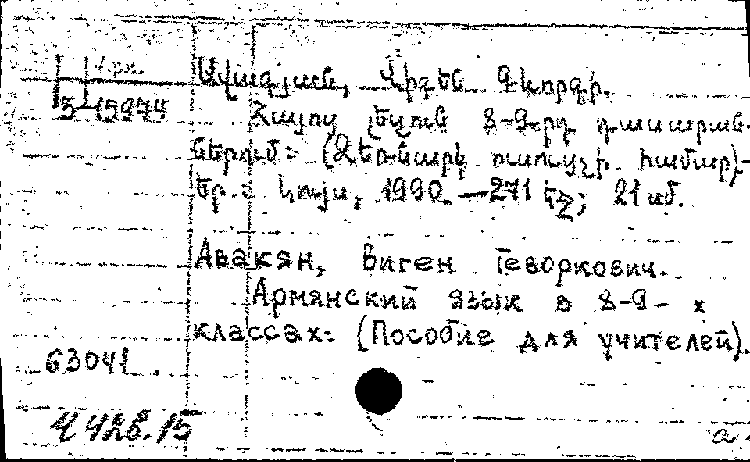 Ավագյան, Վիգեն Գևորգի.
3-15974
Հայոց լեզուն 8-9-րդ դասարան-
ներում: (Ձեռնարկ ուսուցչի համար).-
Եր.: Լույս, 1990.—271 էջ; 21 սմ.
Авакян, Виген Геворкович.
Армянский язык в 8-9-х
классах: (Пособие для учителей).
63041
Ч 426.15
а